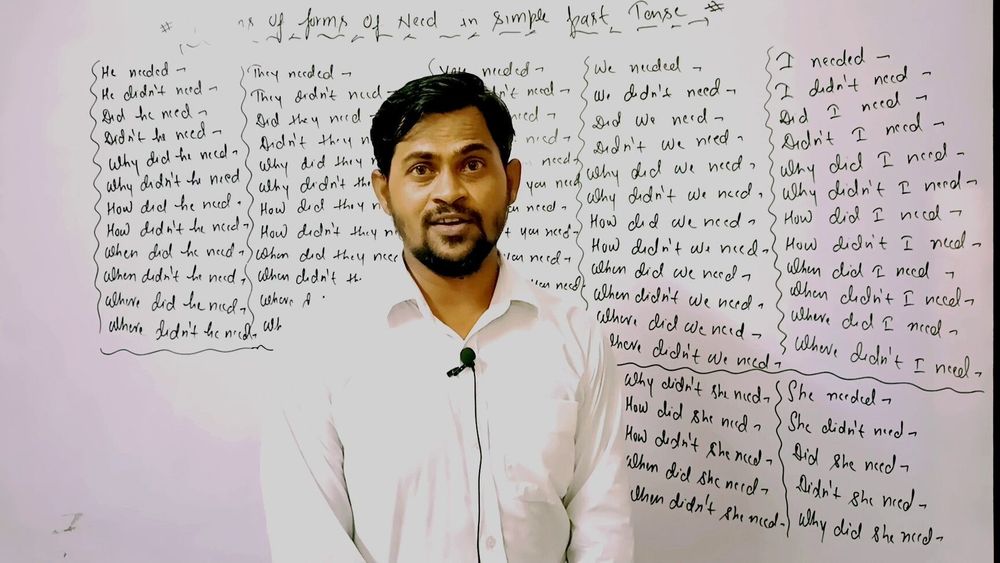 # of forms of Need in simple past Tense #
He needed →
He didn't need →
Did he need →
Didn't he need →
Why did he need →
Why didn't he need
How did he need →
How didn't he need →
When did he need →
When didn't he need →
Where did he need →
Where didn't he need →
They needed →
They didn't need
Did they need →
Didn't they
Why did they
Why didn't
How did they
How didn't they
When did they need
When didn't
Where
You needed →
need →
need →
need →
need →
you need
need →
you need →
need →
need
We needed →
We didn't need →
Did we need →
Didn't we need →
Why did we need →
Why didn't we need →
How did we need →
How didn't we need →
When did we need →
When didn't we need →
Where did we need →
Where didn't we need →
I needed →
I didn't need →
Did I need →
Didn't I need →
Why did I need →
Why didn't I need →
How did I need →
How didn't I need →
When did I need →
When didn't I need →
Where did I need →
Where didn't I need →
Why didn't she need →
How did she need →
How didn't she need →
When did she need →
When didn't she need →
She needed →
She didn't need →
Did she need →
Didn't she need →
Why did she need →